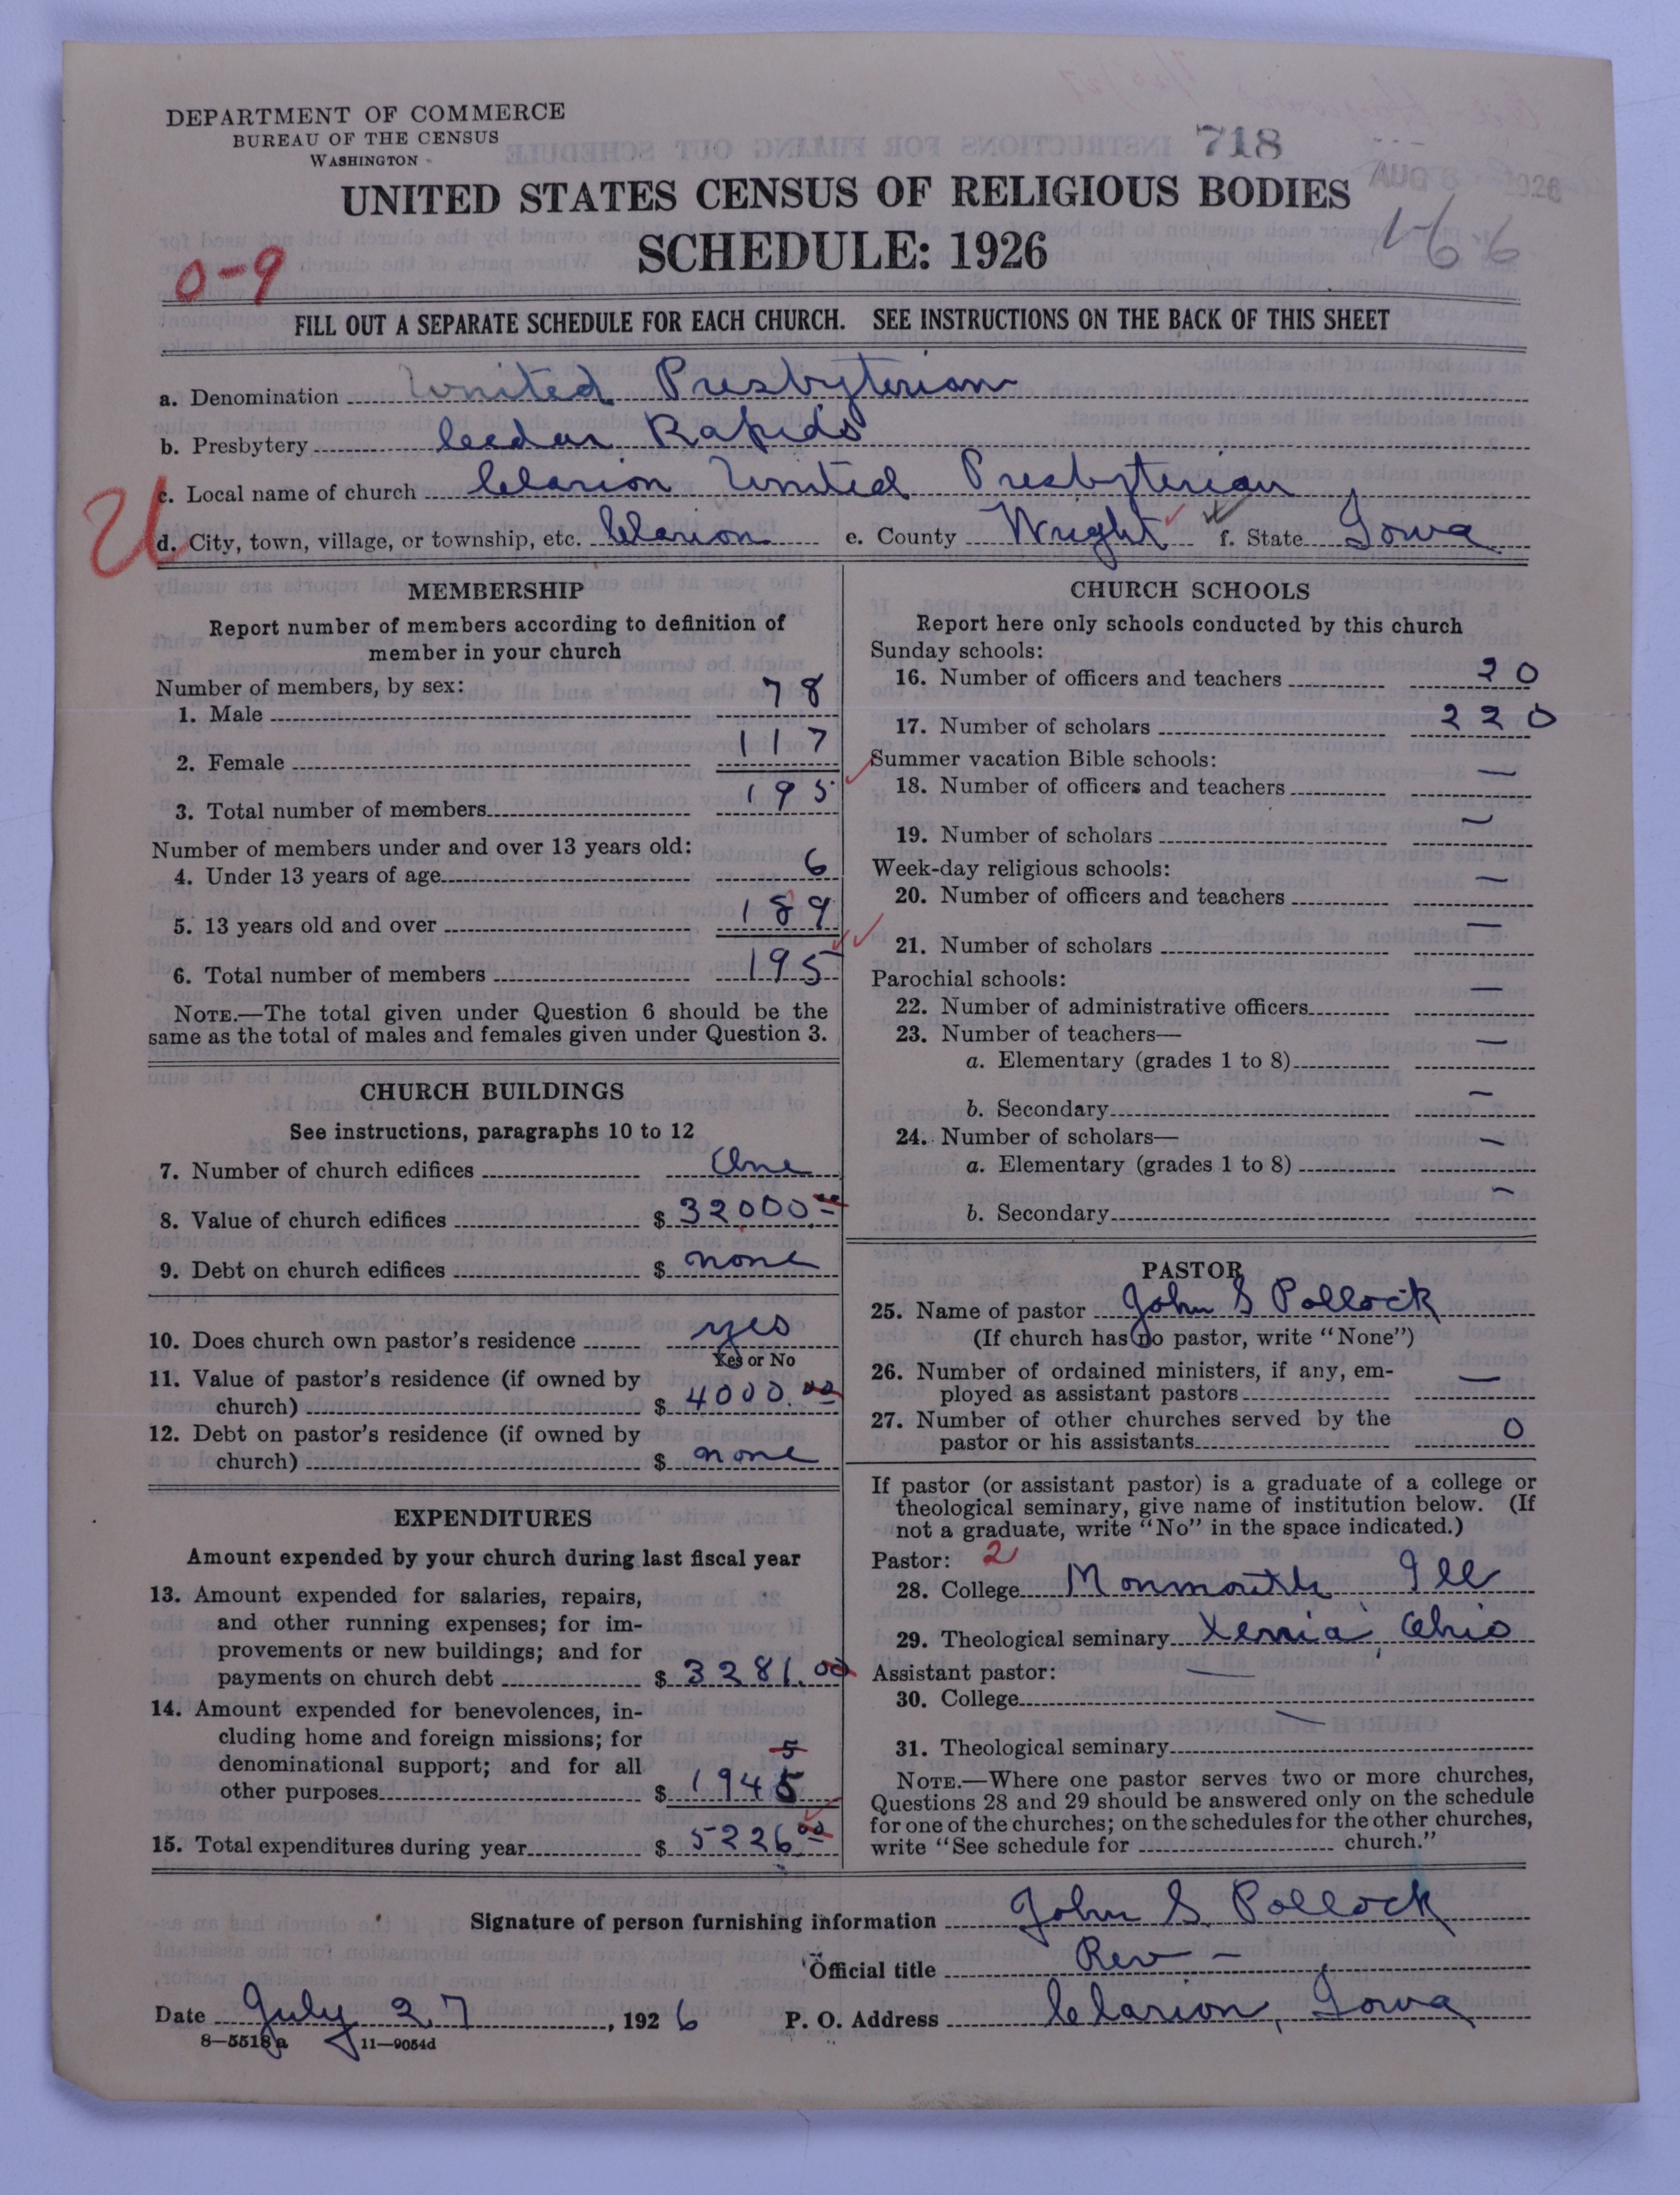 DEPARTMENT OF COMMERCE
BUREAU OF THE CENSUS
WASHINGTON
718
AUG 1926
UNITED STATES CENSUS OF RELIGIOUS BODIES
SCHEDULE: 1926
1-66
0-9
FILL OUT A SEPARATE SCHEDULE FOR EACH CHURCH. SEE INSTRUCTIONS ON THE BACK OF THIS SHEET
a. Denomination United Presbyterian
b. Presbytery Cedar Rapids
c. Local name of church Clarion United Presbyterian
d. City, town, village, or township, etc. Clarion e. County Wright f. State Iowa
MEMBERSHIP
Report number of members according to definition of
member in your church
Number of members, by sex:
1. Male 78
2. Female 117
3. Total number of members 195
Number of members under and over 13 years old:
4. Under 13 years of age 6
5. 13 years old and over 189
6. Total number of members 195
NOTE.—The total given under Question 6 should be the
same as the total of males and females given under Question 3.
CHURCH BUILDINGS
See instructions, paragraphs 10 to 12
7. Number of church edifices One
8. Value of church edifices $ 32000.00
9. Debt on church edifices $ none
10. Does church own pastor's residence yes
Yes or No
11. Value of pastor's residence (if owned by
church) $ 4000.00
12. Debt on pastor's residence (if owned by
church) $ none
EXPENDITURES
Amount expended by your church during last fiscal year
13. Amount expended for salaries, repairs,
and other running expenses; for im-
provements or new buildings; and for
payments on church debt $ 3281.00
14. Amount expended for benevolences, in-
cluding home and foreign missions; for
denominational support; and for all 5
other purposes $ 1945
15. Total expenditures during year $ 5226.00
CHURCH SCHOOLS
Report here only schools conducted by this church
Sunday schools:
16. Number of officers and teachers 20
17. Number of scholars 220
Summer vacation Bible schools:
18. Number of officers and teachers —
19. Number of scholars —
Week-day religious schools:
20. Number of officers and teachers —
21. Number of scholars —
Parochial schools:
22. Number of administrative officers —
23. Number of teachers—
a. Elementary (grades 1 to 8) —
b. Secondary —
24. Number of scholars—
a. Elementary (grades 1 to 8) —
b. Secondary —
PASTOR
25. Name of pastor John S Pollock
(If church has no pastor, write "None")
26. Number of ordained ministers, if any, em-
ployed as assistant pastors —
27. Number of other churches served by the
pastor or his assistants 0
If pastor (or assistant pastor) is a graduate of a college or
theological seminary, give name of institution below. (If
not a graduate, write "No" in the space indicated.)
Pastor: 2
28. College Monmouth Ill
29. Theological seminary Xenia, Ohio
Assistant pastor:
30. College —
31. Theological seminary —
NOTE.—Where one pastor serves two or more churches,
Questions 28 and 29 should be answered only on the schedule
for one of the churches; on the schedules for the other churches,
write "See schedule for church."
Signature of person furnishing information John S. Pollock
Official title Rev -
Date July 27, 1926 P. O. Address Clarion, Iowa
8—5518a 11—9054d